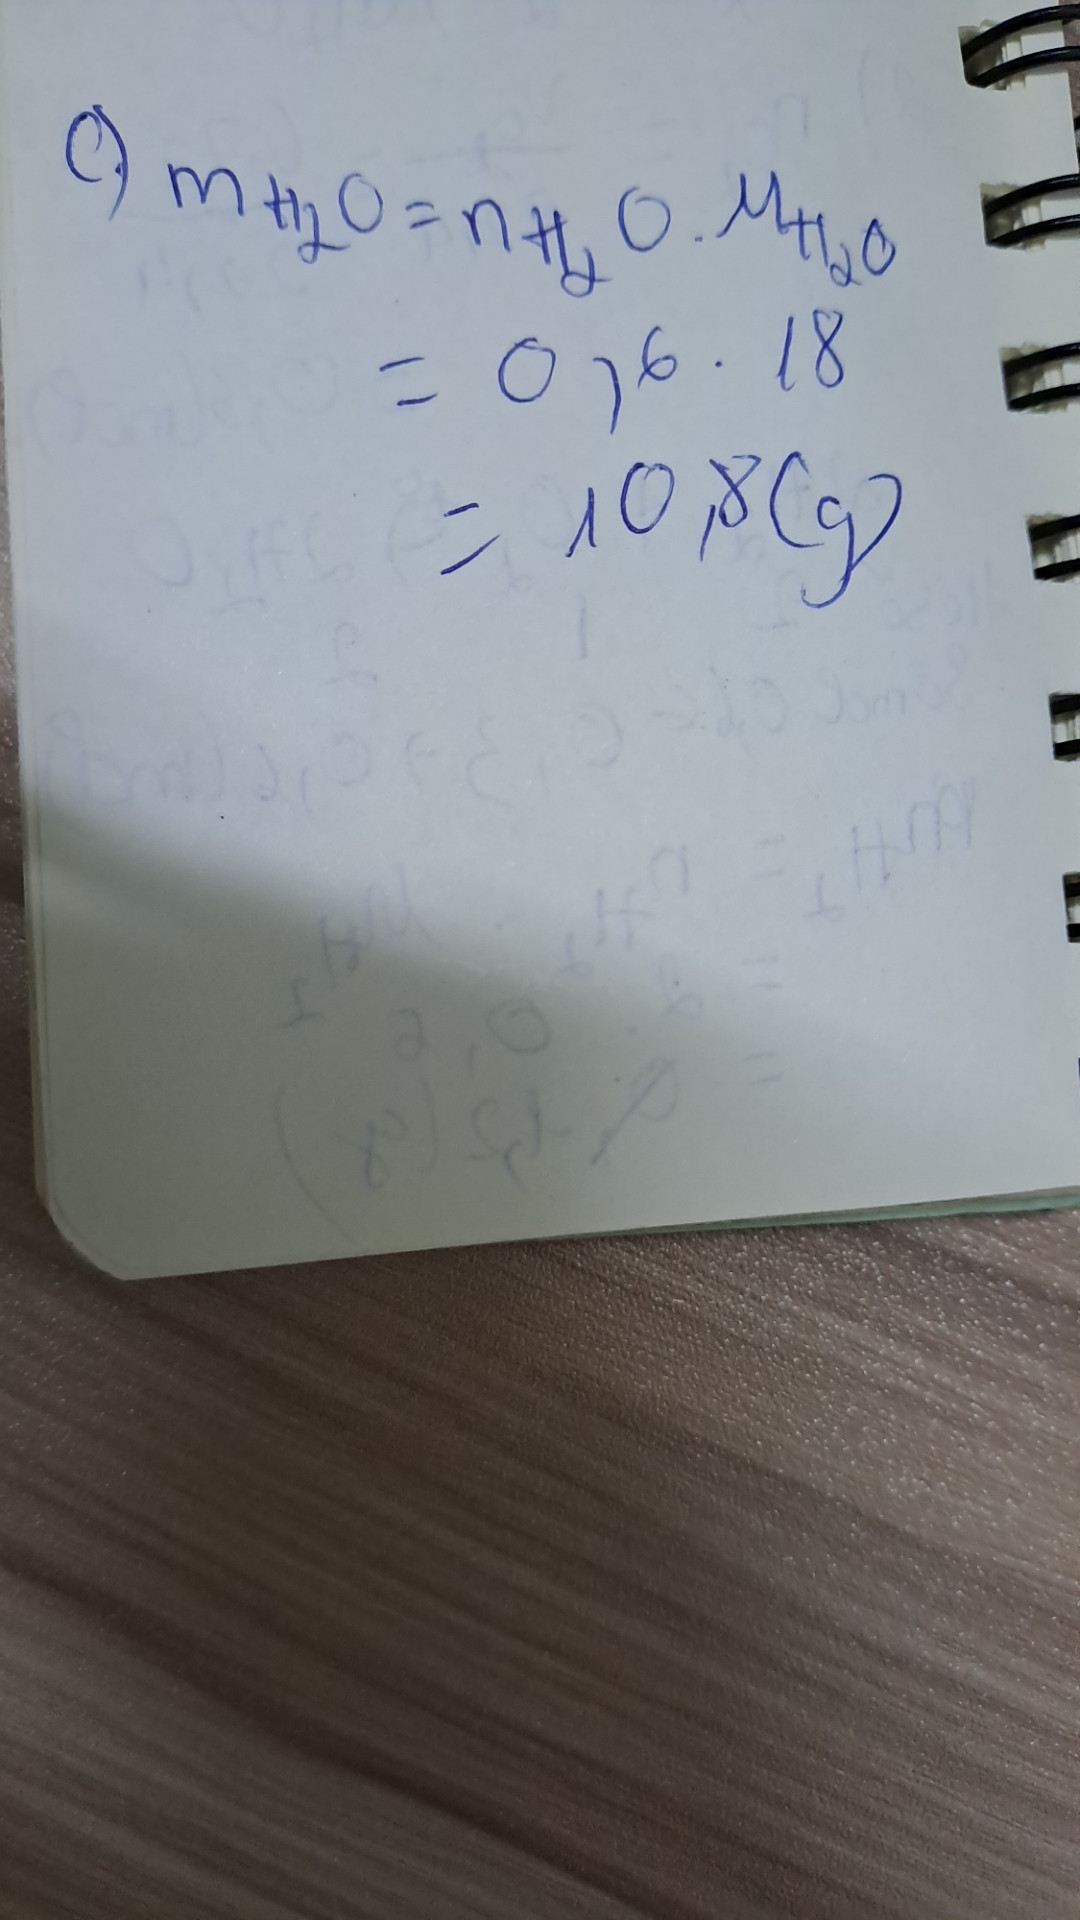 c) mH₂O = nH₂O . MH₂O
= 0,6 . 18
= 10,8 (g)